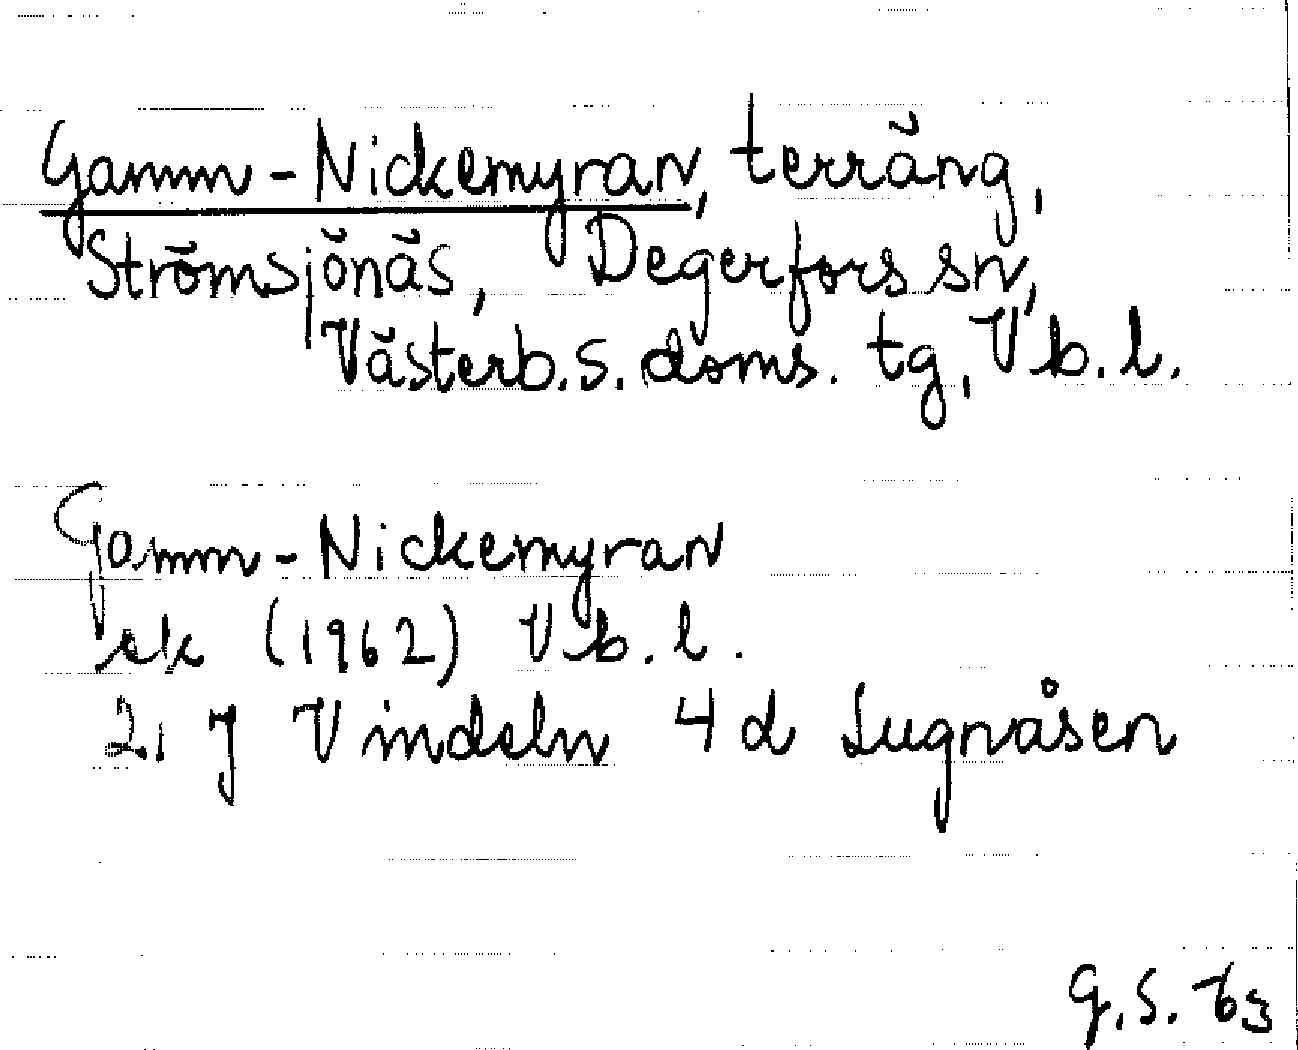 Gamm-Nickemyran, terräng,
Strömsjönäs, Degerfors sn,
Västerb. s. doms. tg, Vb. l.
Gamm-Nickemyran
ek (1962) Vb. l.
21 J Vindeln 4 d Lugnåsen
G. S. 63